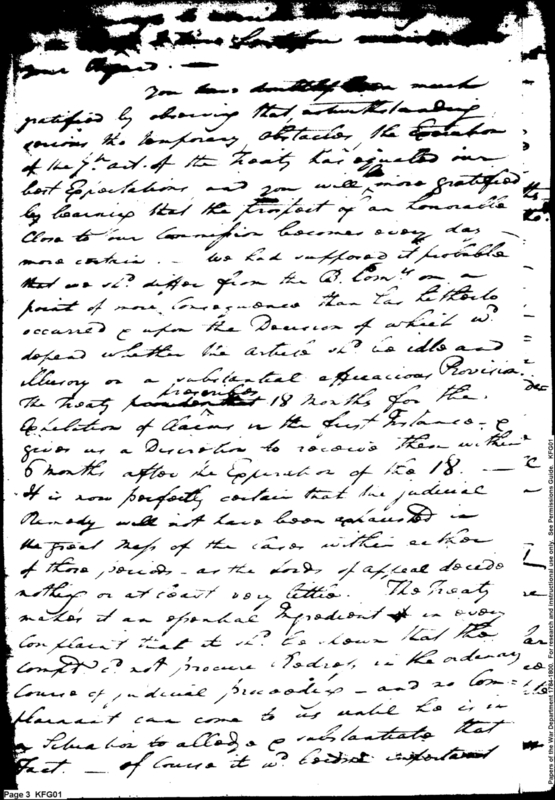 your Regard. —
You have doubtless been much
gratified by observing that, notwithstanding
various tho temporary obstacles, the Execution
of the 7th art. of the Treaty has equated our
best Expectations and you will be more gratified
by learning that the prospect of an honorable
Close to our Commission becomes every day
more certain. — We had supposed it probable
that we shd differ from the B. Comrs on a
point of more Consequence than has hitherto
occurred & upon the Decision of which wd
depend whether the article shd be idle and
illusory or a substantial efficacious Provision.
The Treaty prescribes 18 months for the
Exhibition of Claims in the first Instance — &
gives us a Discretion to receive them within
6 months after the Expiration of the 18. —
It is now perfectly certain that the judicial
Remedy will not have been exhausted in
the great Mass of the Cases within either
of those periods — as the Lords of appeal decide
nothing or at least very little. The Treaty
makes it an essential Ingredient in every
Complaint that it shd be shown that the
Compt cd not procure Redress in the ordinary
Course of judicial proceedings — and no Com-
plainant can come to us until he is in
a Situation to alledge & substantiate that
Fact. — Of Course it wd be important
Page 3 KFG01
Papers of the War Department 1784-1800. For research and instructional use only. See Permissions Guide. KFG01